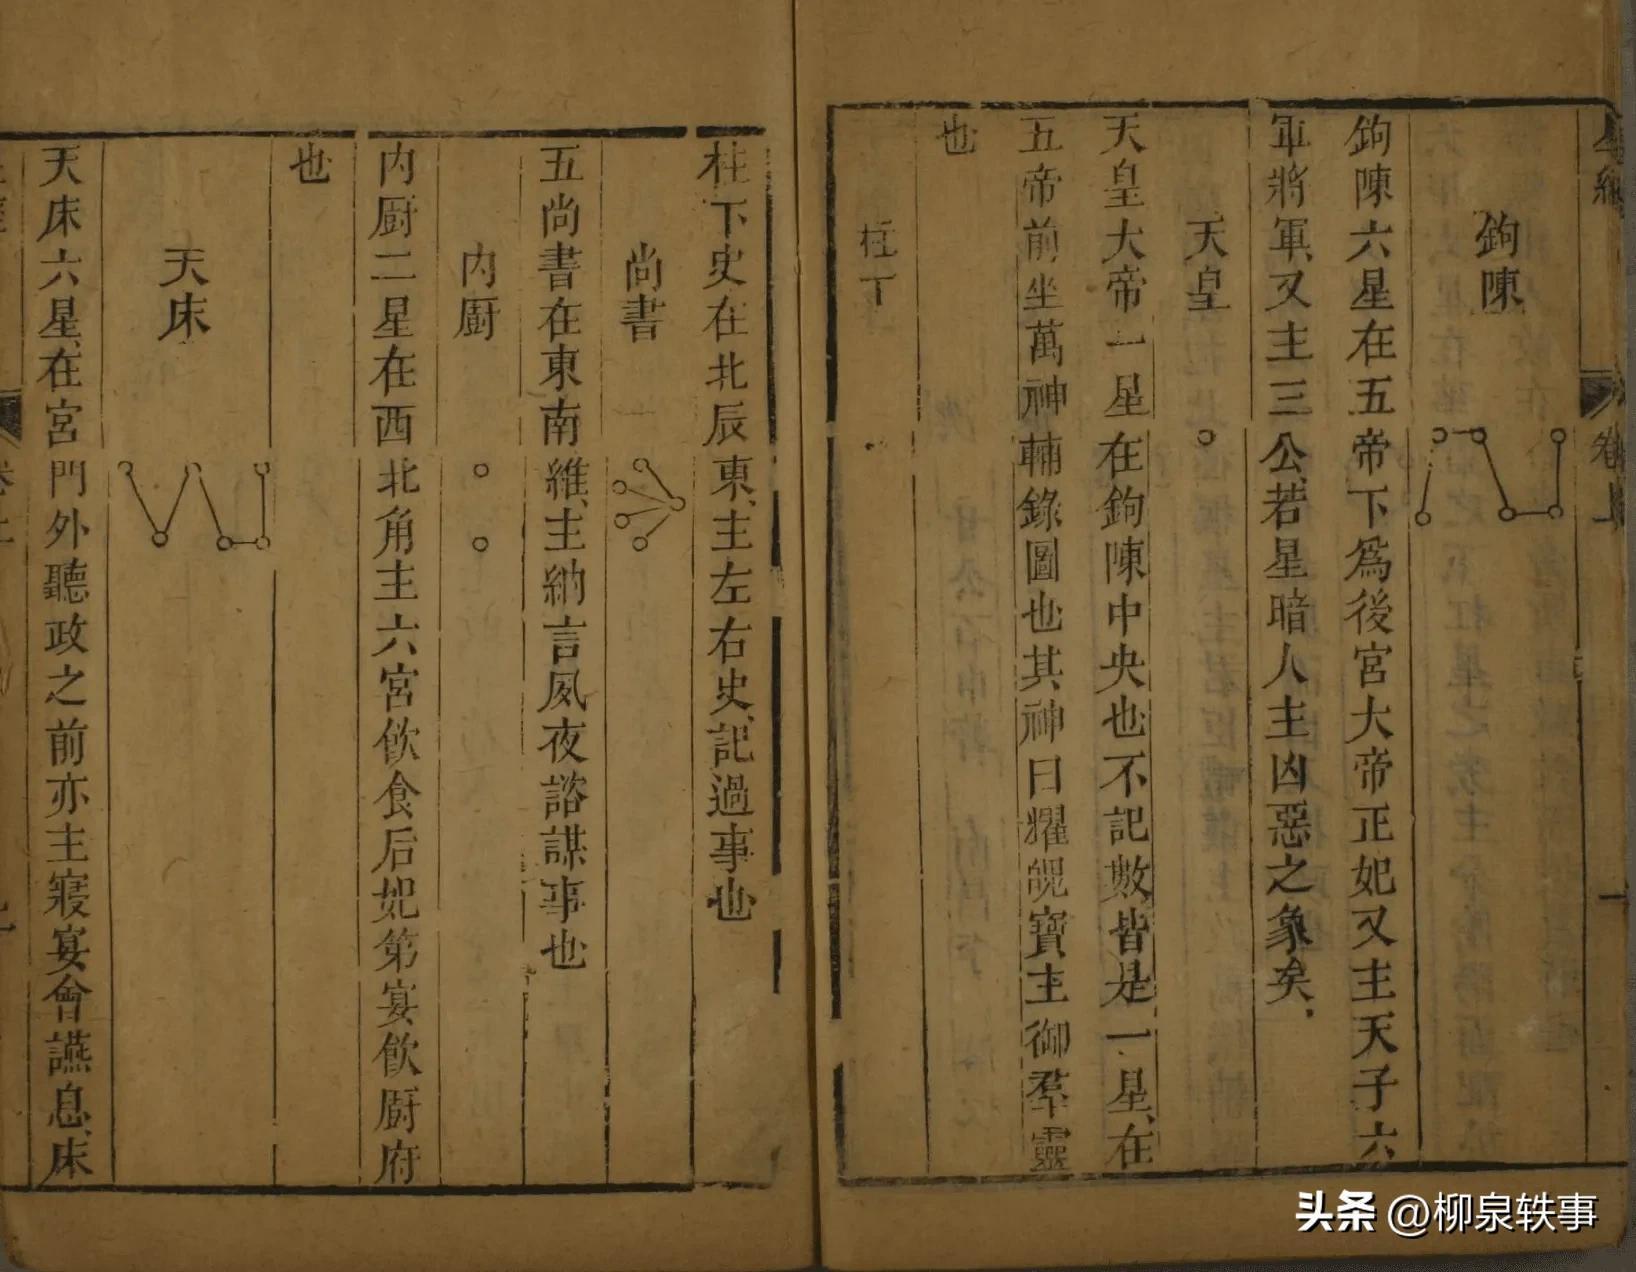 鉤陳
鉤陳六星在五帝下爲後宮大帝正妃又主天子六
軍將軍又主三公若星暗人主凶惡之象矣
天皇
天皇大帝一星在鉤陳中央也不記數皆是一星在
五帝前坐萬神輔錄圖也其神曰耀魄寶主御羣靈
也
柱下
柱下史在北辰東主左右史記過事也
尚書
五尚書在東南維主納言夙夜諮謀事也
内廚
内廚二星在西北角主六宮飲食后妃第宴飲廚府
也
天床
天床六星在宮門外聽政之前亦主寢宴會讌息床
卷上
头条 @柳泉轶事